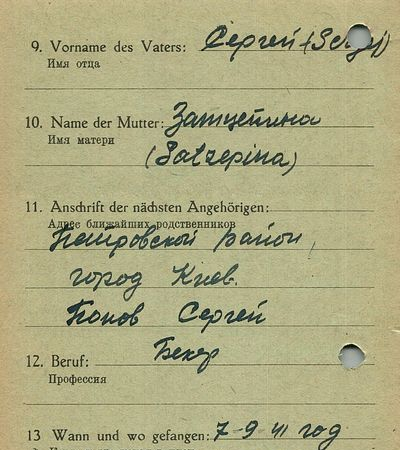 9. Vorname des Vaters: Сергей (Sergej)
Имя отца
10. Name der Mutter: Затцепина
Имя матери
(Satzepina)
11. Anschrift der nächsten Angehörigen:
Адрес ближайших родственников
Петровской район,
город Киев.
Попов Сергей
12. Beruf: Бекер
Профессия
13 Wann und wo gefangen: 7-9 41 год